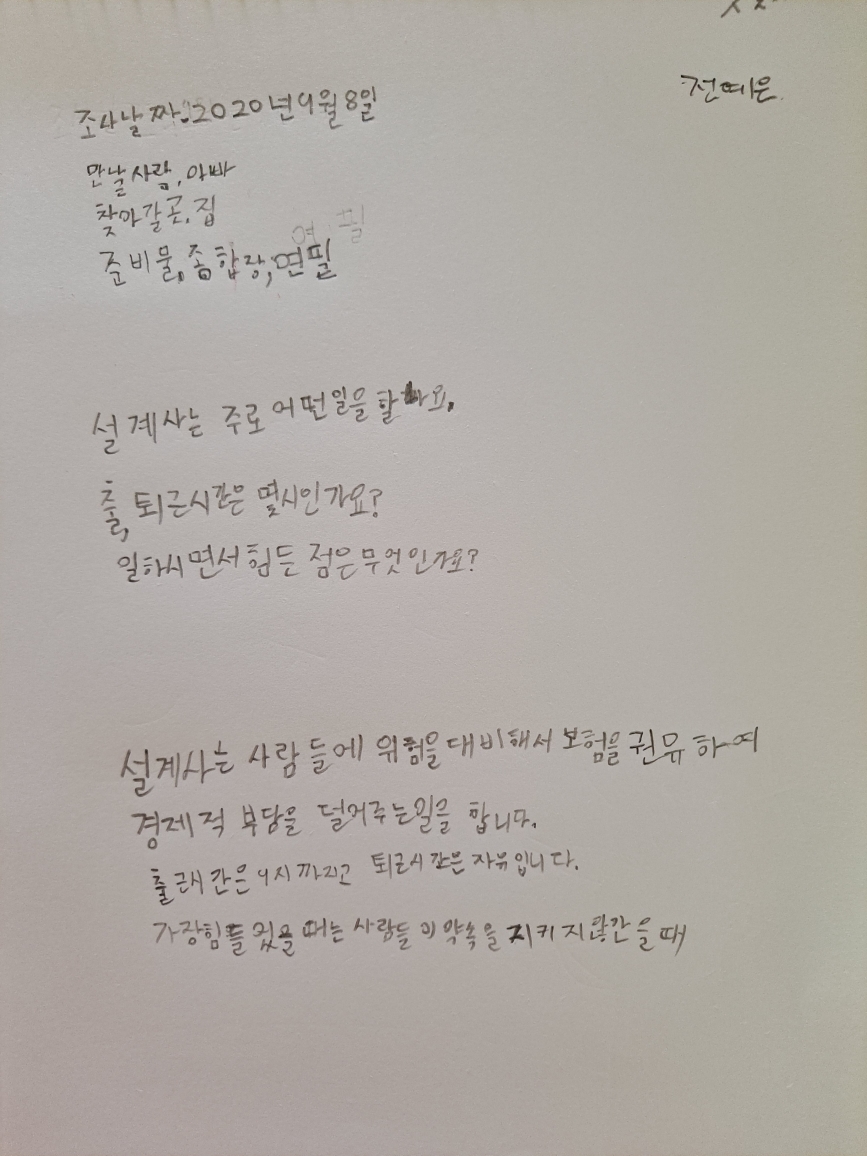 전예은
조사날짜.2020년9월8일
만날사람, 아빠
찾아갈곳, 집
연필
준비물, 종합장, 연필
설계사는 주로 어떤일을 할까요.
출, 퇴근시간은 몇시인가요?
일하시면서 힘든 점은무엇인가요?
설계사는 사람들에 위험을대비해서 보험을 권유하여
경제적 부담을 덜어주는일을 합니다.
출근시간은 9시까지고 퇴근시간은 자유입니다.
가장힘들 때는 사람들이약속을 지키지 을때